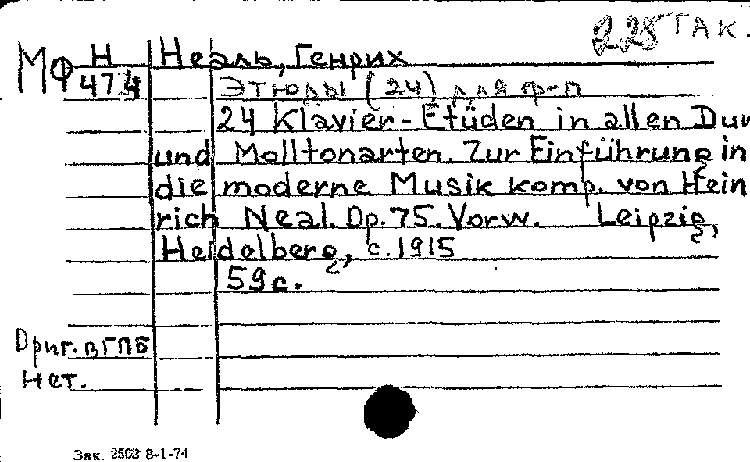 225 ТАК.
МФ Н Неаль, Генрих
474 Этюды (24) для ф-п
24 Klavier-Etüden in allen Dur
und Molltonarten. Zur Einführung in
die moderne Musik komp. von Hein
rich Neal. Op. 75. Vorw. Leipzig,
Heidelberg, c. 1915
59 с.
Ориг. в ГПБ
Нет.
Зак. 2503 8-1-74